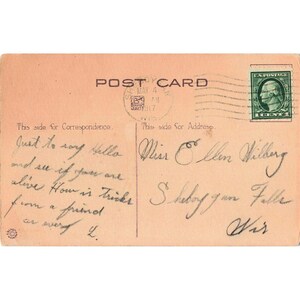 POST CARD
U.S. POSTAGE
1 CENT 1
This side for Correspondence.
This side for Address.
Just to say Hello
and see if you are
alive How is Tricks
from a friend
as ever
L.
Miss Ellen Wilberg
Sheboygan Falls
Wis